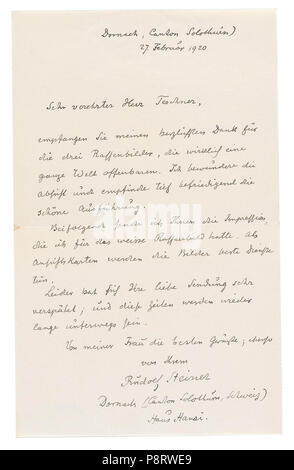 Dornach, (Canton Solothurn)
27. Februar 1920
Sehr verehrter Herr Teschner,
empfangen Sie meinen herzlichsten Dank für
die drei Rassenbilder, die wirklich eine
ganze Welt offenbaren. Ich bewundere die
Absicht und empfinde tief befriedigend die
schöne Ausführung.
Beifolgend sende ich Ihnen die Impression,
die ich für das weisse Rassenbild hatte. Als
Ansichtskarten werden die Bilder beste Dienste
tun.
Leider hat sich Ihre liebe Sendung sehr
verspätet; und diese Zeilen werden wieder
lange unterwegs sein.
Von meiner Frau die besten Grüße; ebenso
von Ihrem
Rudolf Steiner
Dornach (Canton Solothurn, Schweiz)
Haus Hansi.
alamy
Image ID: P8RWE9
www.alamy.com